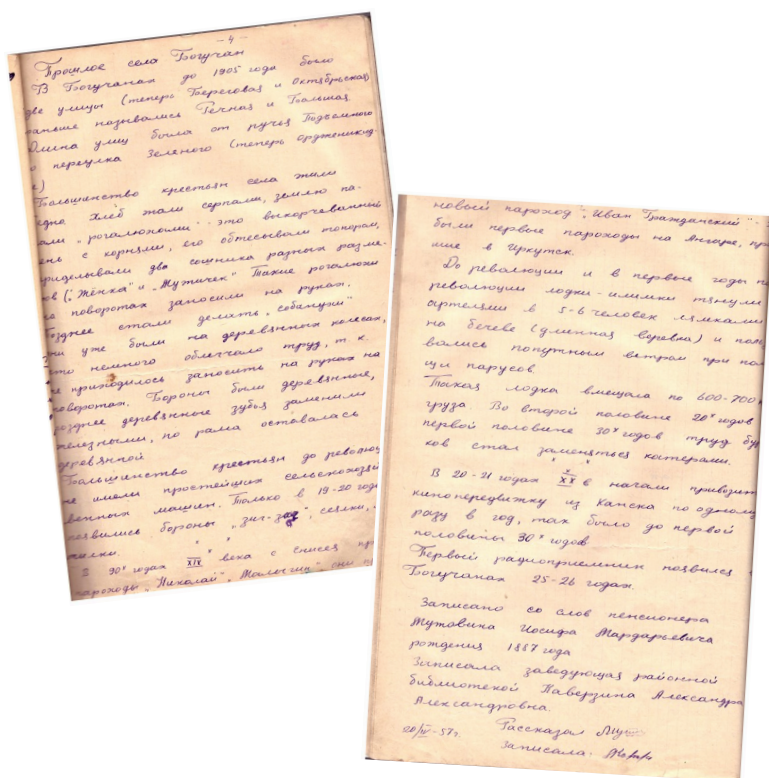 - 4 -
Прошлое села Богучан
В Богучанах до 1905 года было
две улицы (теперь Береговая и Октябрьская)
раньше назывались Речная и Большая.
Длина улиц была от ручья Подъемного
о переулка Зеленого (теперь орджоникид-
е)
Большинство крестьян села жили
едно. Хлеб жали серпами, землю па-
али „рогалюхами" - это выкорчеванный
ень с корнями, его обтесывали топором,
приделывали два сошника разных разме-
ов („Жёнка" и „Мужичек" Такие рогалюхи
на поворотах заносили на руках.
Позднее стали делать „собанухи"
они уже были на деревянных колесах,
это немного облегчало труд, т. к.
не приходилось заносить на руках на
поворотах. Бороны были деревянные,
позднее деревянные зубья заменили
железными, но рама оставалась
деревянной.
Большинство крестьян до революц
не имели простейших сельскохозяй
венных машин. Только в 19-20 года
появились бороны „зиг-заг", сеялки,
х х х
В 90х годах XIX века с енисея при
пароходы „Николай", „Малыгин" они
новый пароход „Иван Гражданский" -
были первые пароходы на Ангаре, при
шие в Иркутск.
До революции и в первые годы по
революции лодки-илимки тянули
артелями в 5-6 человек лямками
на бечеве (длинная веревка) и поль
вались попутным ветром при по
щи парусов.
Такая лодка вмещала по 600-700
груза. Во второй половине 20х годов
первой половине 30х годов труд бур
ков стал заменяться катерами.
х х х
В 20-21 годах XX в начали привозит
кинопередвижку из Канска по одному
разу в год, так было до первой
половины 30х годов.
Первый радиоприемник появился
Богучанах 25-26 годах.
Записано со слов пенсионера
Мутовина Иосифа Мардарьевича
рождения 1887 года
Записала заведующая районной
библиотекой Паверзина Александра
Александровна.
20/IV-57г. Рассказал
Записала: